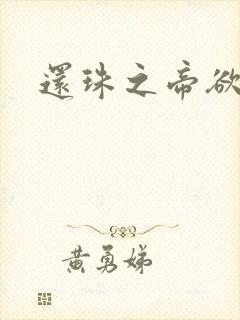 還珠之帝欲
黃勇娣